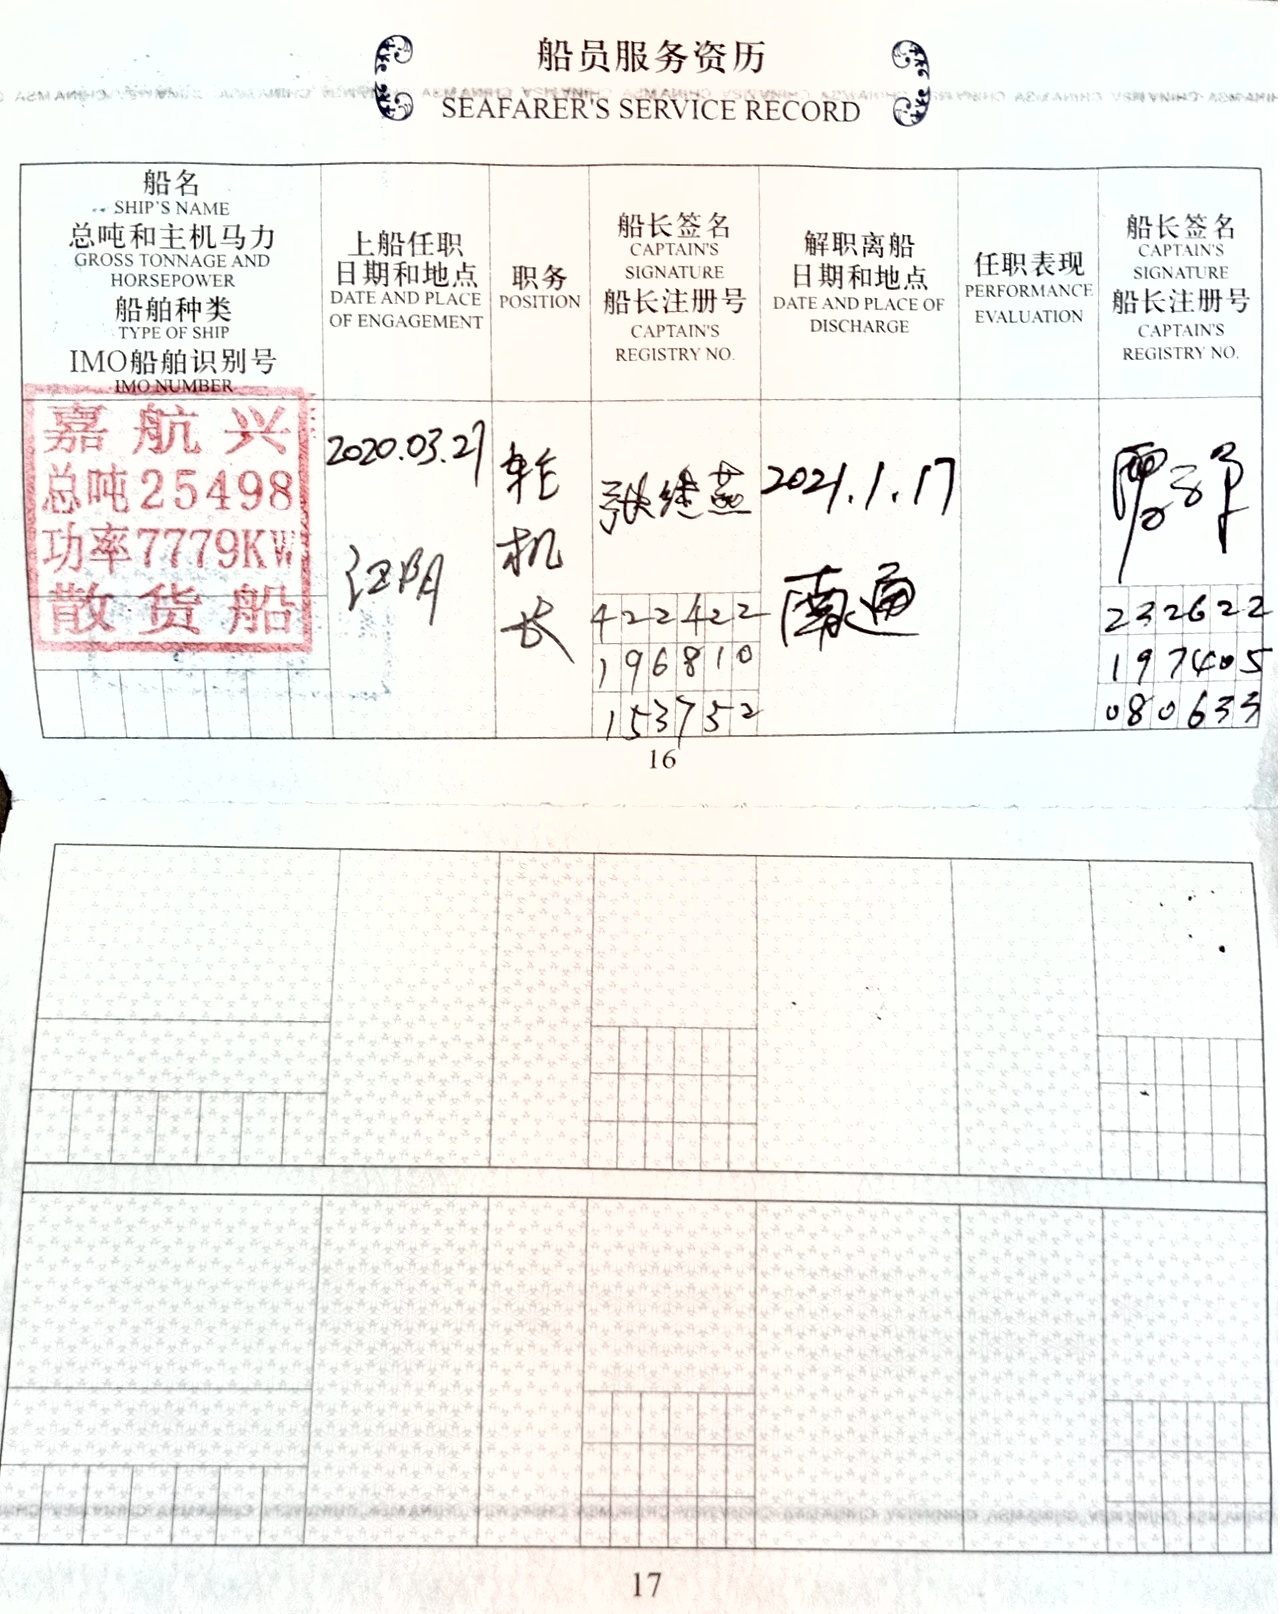 船员服务资历
SEAFARER'S SERVICE RECORD
船名
SHIP'S NAME
总吨和主机马力
GROSS TONNAGE AND
HORSEPOWER
船舶种类
TYPE OF SHIP
IMO船舶识别号
IMO NUMBER
上船任职
日期和地点
DATE AND PLACE
OF ENGAGEMENT
职务
POSITION
船长签名
CAPTAIN'S
SIGNATURE
船长注册号
CAPTAIN'S
REGISTRY NO.
解职离船
日期和地点
DATE AND PLACE OF
DISCHARGE
任职表现
PERFORMANCE
EVALUATION
船长签名
CAPTAIN'S
SIGNATURE
船长注册号
CAPTAIN'S
REGISTRY NO.
嘉航兴
总吨25498
功率7779KW
散货船
2020.03.27
江阴
轮
机
长
张继燕
422422
196810
153752
2021.1.17
南通
232622
197405
080633
16
17